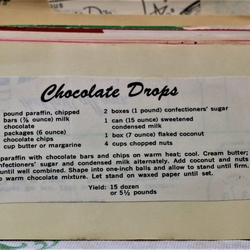 Chocolate Drops
pound paraffin, chipped
bars (⅞ ounce) milk
chocolate
packages (6 ounce)
chocolate chips
cup butter or margarine
2 boxes (1 pound) confectioners' sugar
1 can (15 ounce) sweetened
condensed milk
1 box (7 ounce) flaked coconut
4 cups chopped nuts
paraffin with chocolate bars and chips on warm heat; cool. Cream butter;
confectioners' sugar and condensed milk alternately. Add coconut and nuts
until well combined. Shape into one-inch balls and allow to stand until firm.
warm chocolate mixture. Let stand on waxed paper until set.
Yield: 15 dozen
or 5½ pounds